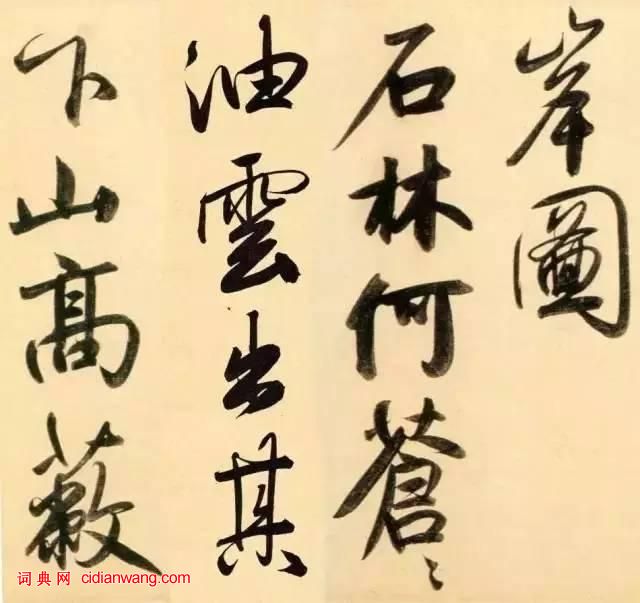 岸圖
石林何蒼〻
油雲出其
下山高蔽
词典网 cidianwang.com